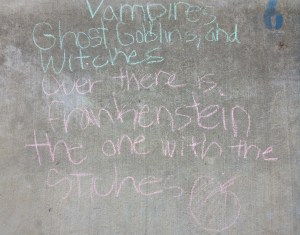 Vampires,
Ghost, Goblins, and
Witches
Over there is
Frankenstein
the one with the
Stiches